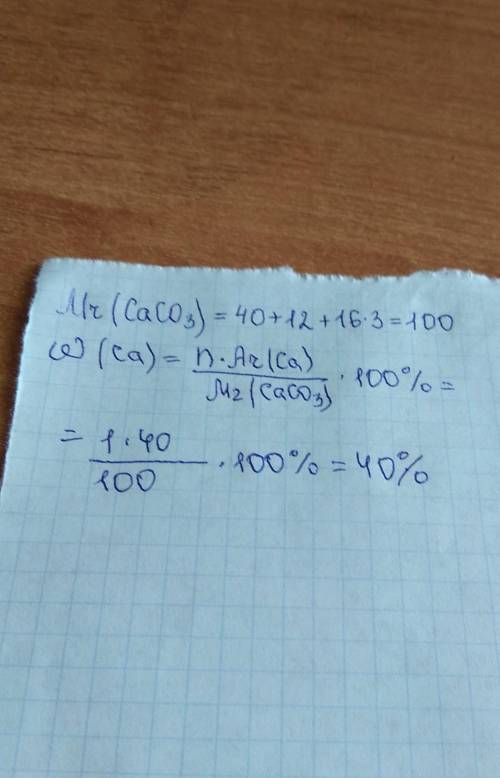 Mr(CaCO₃) = 40+12+16·3=100
ω(Ca) = n·Ar(Ca) / Mr(CaCO₃) · 100% =
= 1·40 / 100 · 100% = 40%